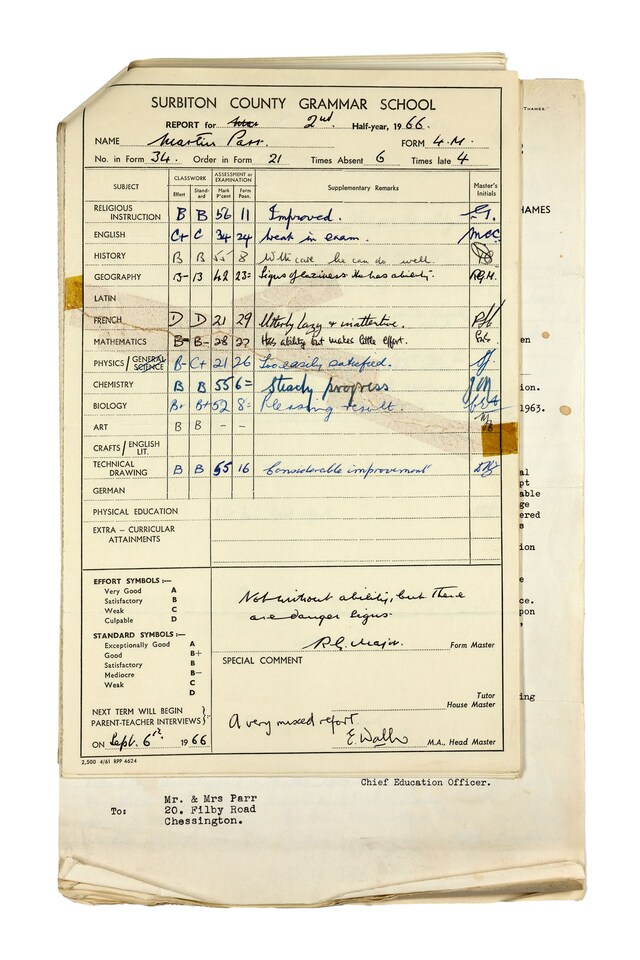 SURBITON COUNTY GRAMMAR SCHOOL
REPORT FOR 2nd Half-year, 1966.
NAME Martin Parr. FORM 4.M.
No. in Form 34. Order in Form 21 Times Absent 6 Times late 4
SUBJECT CLASSWORK Effort Stand-ard ASSESSMENT or EXAMINATION Mark P'cent Form Posn. Supplementary Remarks Master's Initials
RELIGIOUS INSTRUCTION B B 56 11 Improved.
ENGLISH C+ C 34 24 Weak in exam. MCC
HISTORY B B 55 8 With care he can do well.
GEOGRAPHY B- B 42 23= Signs of laziness. He has ability. R.G.M.
LATIN
FRENCH D D 21 29 Utterly lazy & inattentive.
MATHEMATICS B- B- 28 27 Has ability but makes little effort.
PHYSICS / GENERAL SCIENCE B- C+ 21 26 Too easily satisfied.
CHEMISTRY B B 55 6= Steady progress
BIOLOGY B+ B+ 52 8= Pleasing result.
ART B B - -
CRAFTS / ENGLISH LIT.
TECHNICAL DRAWING B B 55 16 Considerable improvement
GERMAN
PHYSICAL EDUCATION
EXTRA – CURRICULAR ATTAINMENTS
EFFORT SYMBOLS :—
Very Good A
Satisfactory B
Weak C
Culpable D
STANDARD SYMBOLS :—
Exceptionally Good A
Good B+
Satisfactory B
Mediocre B–
Weak C
D
Not without ability, but there
are danger signs.
R.G. Major. Form Master
SPECIAL COMMENT
Tutor
House Master
NEXT TERM WILL BEGIN
PARENT-TEACHER INTERVIEWS
ON Sept. 6th. 1966
A very mixed report
E. Walls M.A., Head Master
2,500 4/61 RPP 4624
THAMES
HAMES
en
ion.
1963.
al
pt
able
ge
ered
s
ion
e
ce.
pon
,
ing
Chief Education Officer.
To: Mr. & Mrs Parr
20. Filby Road
Chessington.